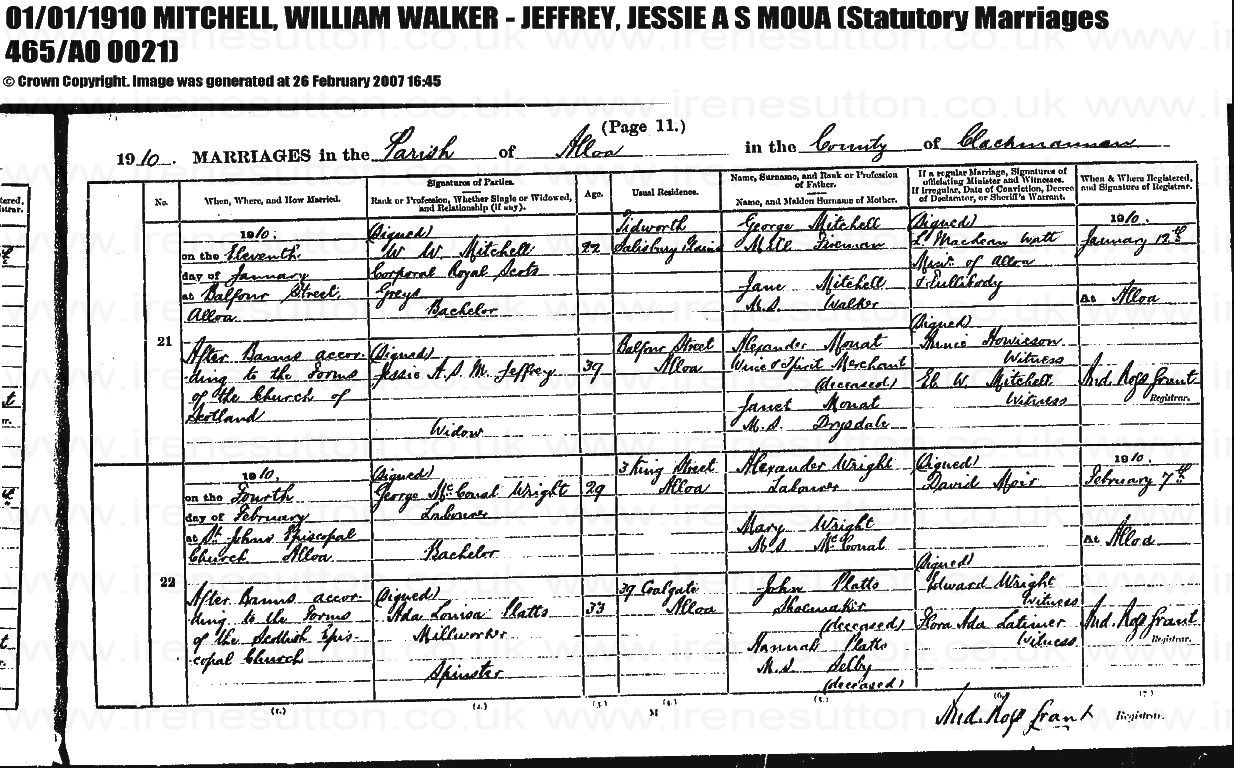 01/01/1910 MITCHELL, WILLIAM WALKER - JEFFREY, JESSIE A S MOUA (Statutory Marriages
465/AO 0021)
© Crown Copyright. Image was generated at 26 February 2007 16:45
(Page 11.)
1910. MARRIAGES in the Parish of Alloa in the County of Clackmannan
No.
When, Where, and How Married.
Signatures of Parties.
Rank or Profession, Whether Single or Widowed,
and Relationship (if any).
Age.
Usual Residence.
Name, Surname, and Rank or Profession
of Father.
Name, and Maiden Surname of Mother.
If a regular Marriage, Signatures of
officiating Minister and Witnesses.
If irregular, Date of Conviction, Decree
of Declarator, or Sheriff's Warrant.
When & Where Registered,
and Signature of Registrar.
21
1910,
on the Eleventh
day of January
at Balfour Street,
Alloa
After Banns accor-
ding to the Forms
of the Church of
Scotland
(Signed)
W W Mitchell
Corporal Royal Scots
Greys
Bachelor
(Signed)
Jessie A. S. M. Jeffrey
Widow
22
39
Tidworth
Salisbury Plains
Balfour Street
Alloa
George Mitchell
Jane Mitchell
M.S. Walker
Alexander Mouat
Wine & Spirit Merchant
(deceased)
Janet Mouat
M.S. Drysdale
(Signed)
L Maclean Watt
Minr. of Alloa
& Tullibody
(Signed)
Howieson
Witness
W. Mitchell
Witness
1910.
January 12th
At Alloa
And. Ross Grant
Registrar.
22
1910,
on the Fourth
day of February
at St. Johns Episcopal
Church Alloa
After Banns accor-
ding to the Forms
of the Scottish Epis-
copal Church
(Signed)
George McConat Wright
Labourer
Bachelor
(Signed)
Ada Louisa Platts
Millworker
Spinster
29
33
3 King Street
Alloa
39 Coalgate
Alloa
Alexander Wright
Labourer
Mary Wright
M.S. McConat
John Platts
Shoemaker
(deceased)
Hannah Platts
M.S. Selby
(deceased)
(Signed)
David Moir
(Signed)
Edward Wright
Witness
Flora Ada Latimer
Witness
1910.
February 7th
At Alloa
And. Ross Grant
Registrar.
(1.)
(2.)
(3.)
M
(4.)
(5.)
(6.)
(7.)
And. Ross Grant Registrar.
www.irenesutton.co.uk